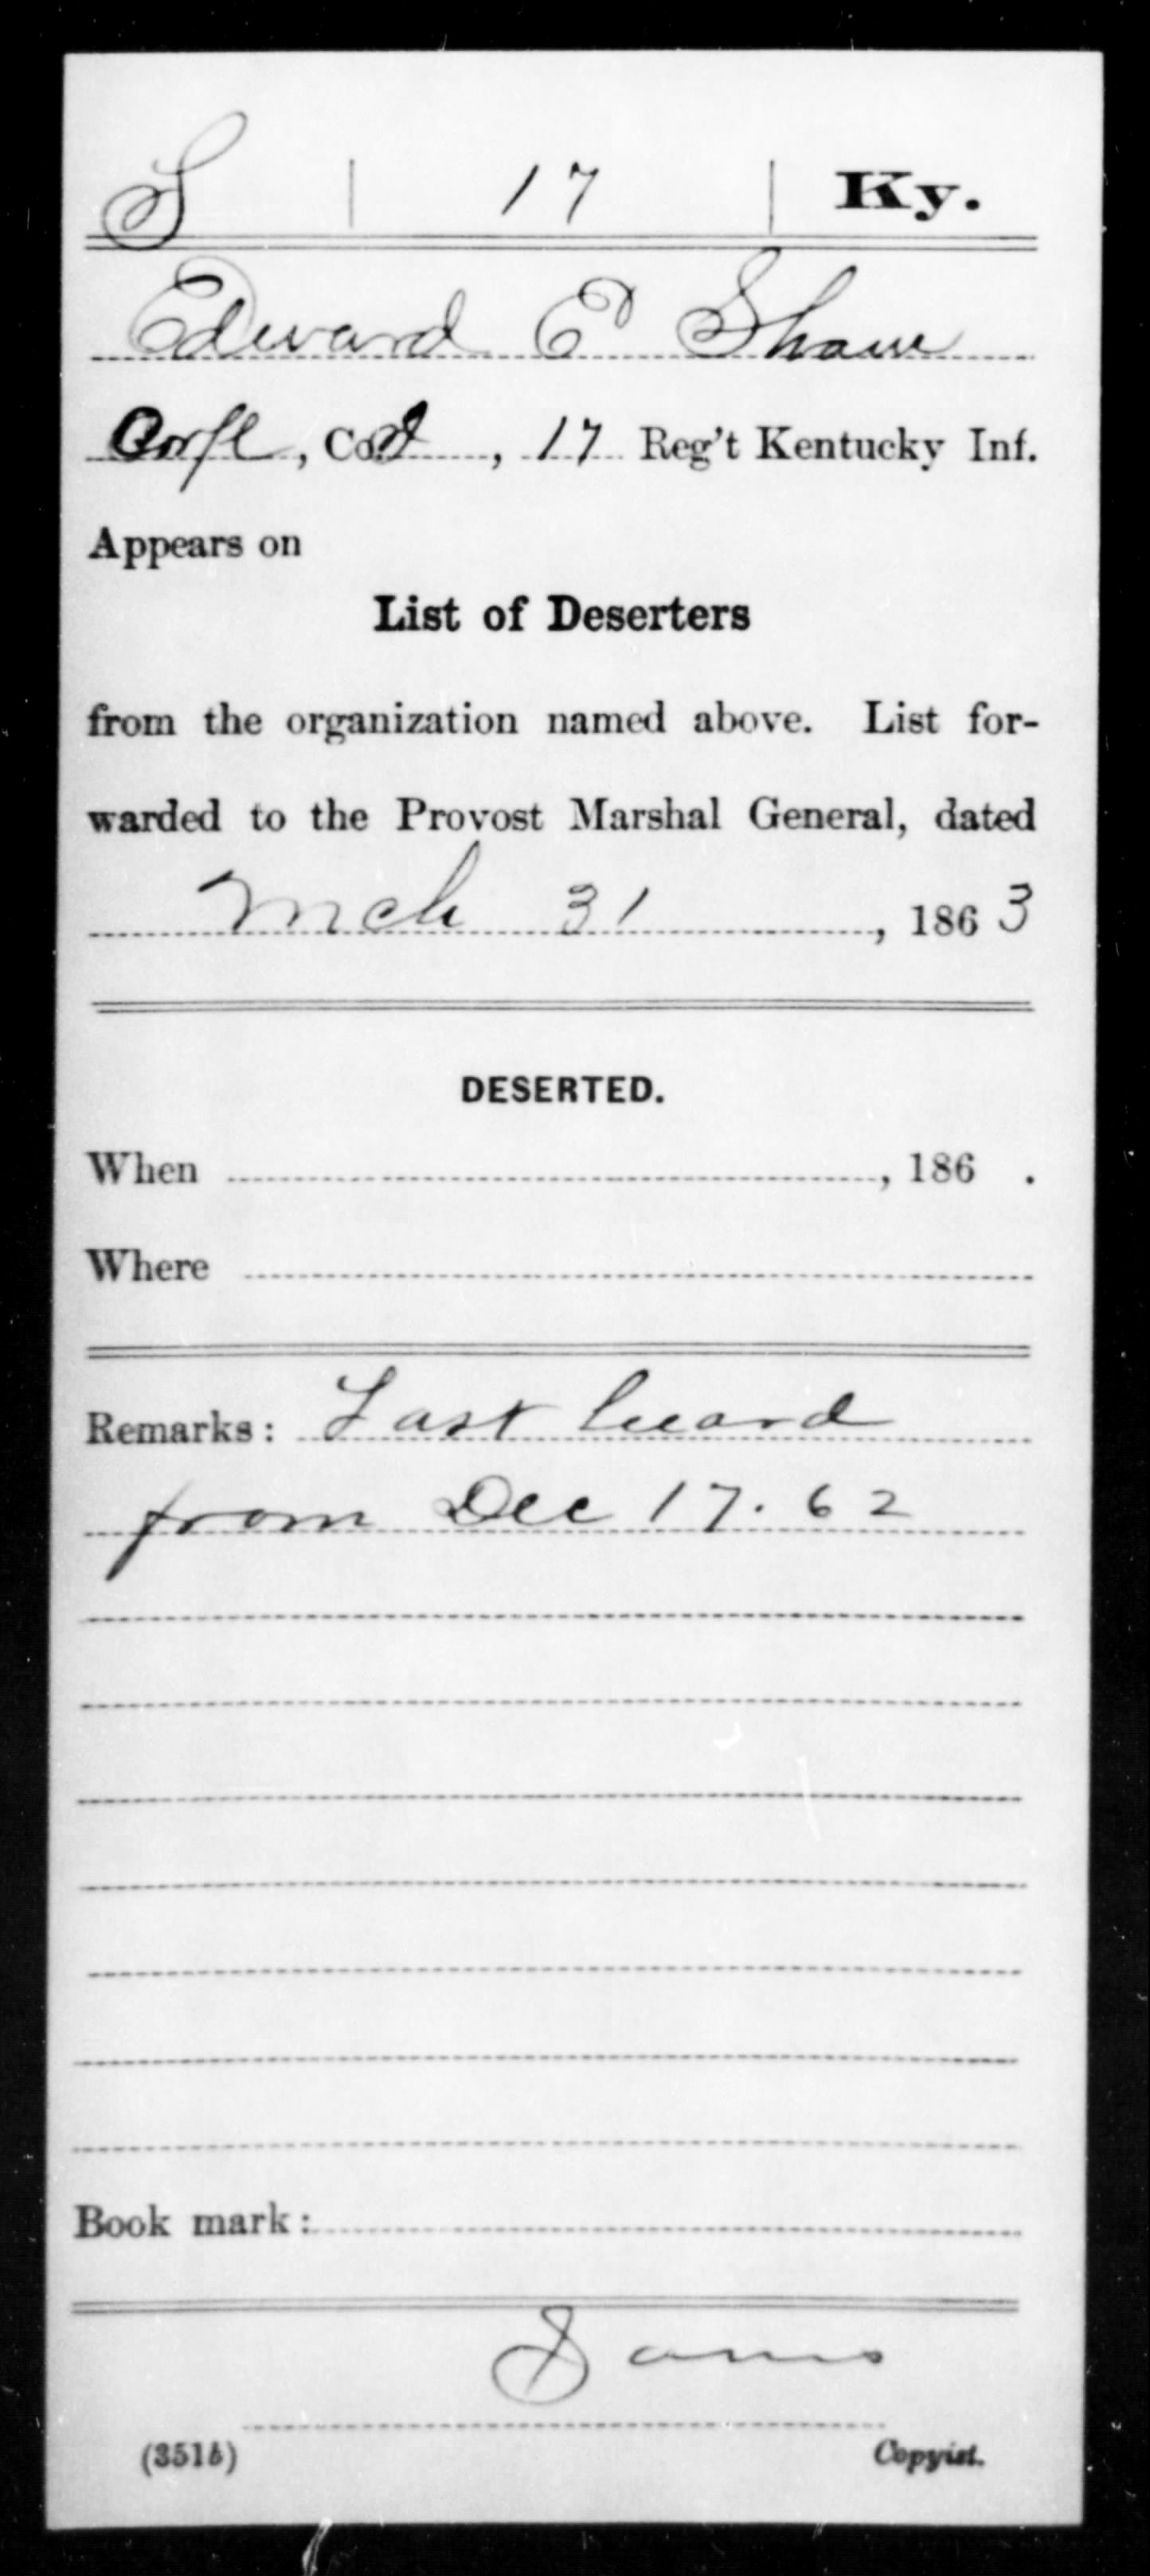 S | 17 | Ky.
Edward E Shaw
Corpl, Co. I, 17 Reg't Kentucky Inf.
Appears on
List of Deserters
from the organization named above. List for-
warded to the Provost Marshal General, dated
Mch 31, 1863
DESERTED.
When , 186 .
Where
Remarks: Last heard
from Dec 17. 62
Book mark:
(351b)
Copyist.